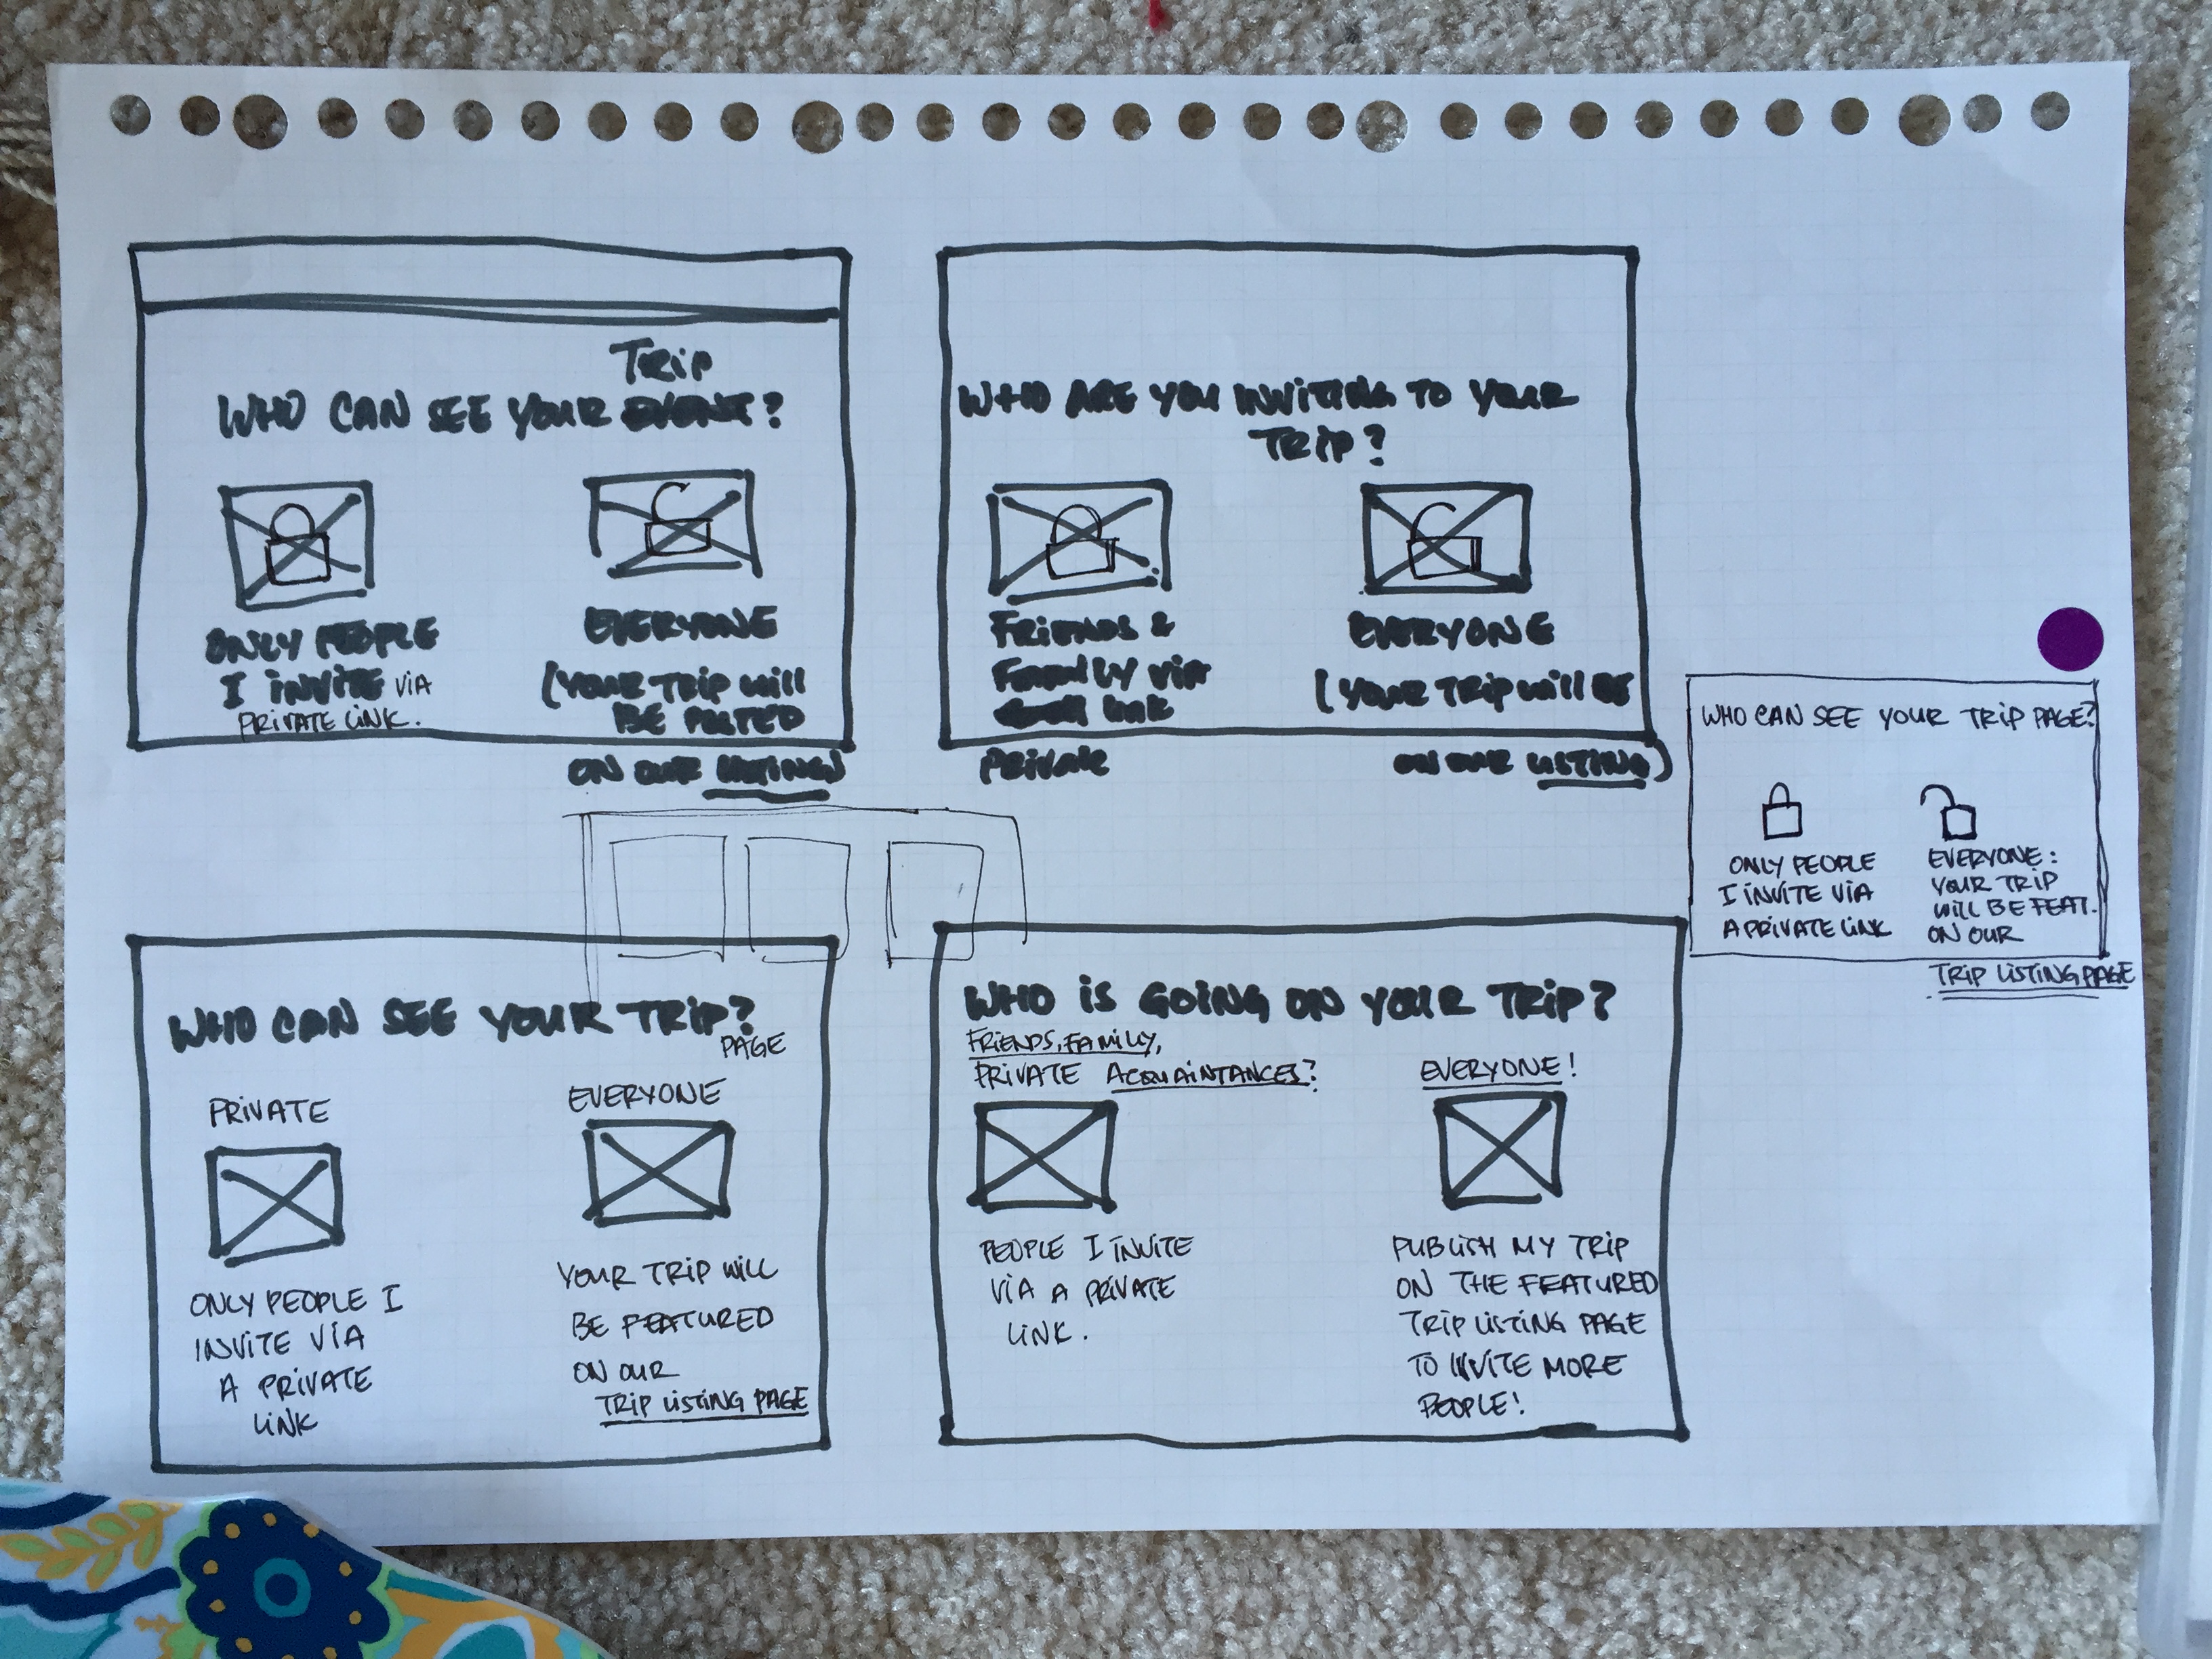 TRIP
WHO CAN SEE YOUR EVENT?
ONLY PEOPLE
I INVITE VIA
PRIVATE LINK.
EVERYONE
(YOUR TRIP WILL
BE POSTED
ON OUR LISTING)
WHO ARE YOU INVITING TO YOUR
TRIP?
FRIENDS &
FAMILY VIA
LINK
PRIVATE
EVERYONE
(YOUR TRIP WILL BE
ON OUR LISTING)
WHO CAN SEE YOUR TRIP PAGE?
ONLY PEOPLE
I INVITE VIA
A PRIVATE LINK
EVERYONE:
YOUR TRIP
WILL BE FEAT.
ON OUR
TRIP LISTING PAGE
WHO CAN SEE YOUR TRIP?
PAGE
PRIVATE
ONLY PEOPLE I
INVITE VIA
A PRIVATE
LINK
EVERYONE
YOUR TRIP WILL
BE FEATURED
ON OUR
TRIP LISTING PAGE
WHO IS GOING ON YOUR TRIP?
FRIENDS, FAMILY,
PRIVATE ACQUAINTANCES?
PEOPLE I INVITE
VIA A PRIVATE
LINK.
EVERYONE!
PUBLISH MY TRIP
ON THE FEATURED
TRIP LISTING PAGE
TO INVITE MORE
PEOPLE!